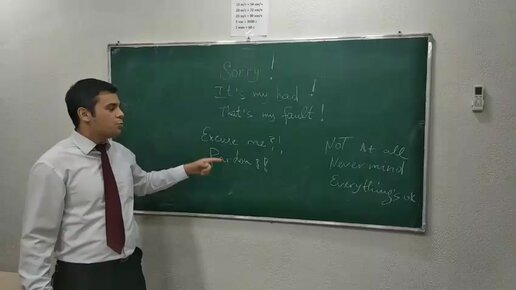 Sorry !
It's my bad !
That's my fault !
Excuse me ?!
Pardon ?!
Not At all
Never mind
Everything's ok